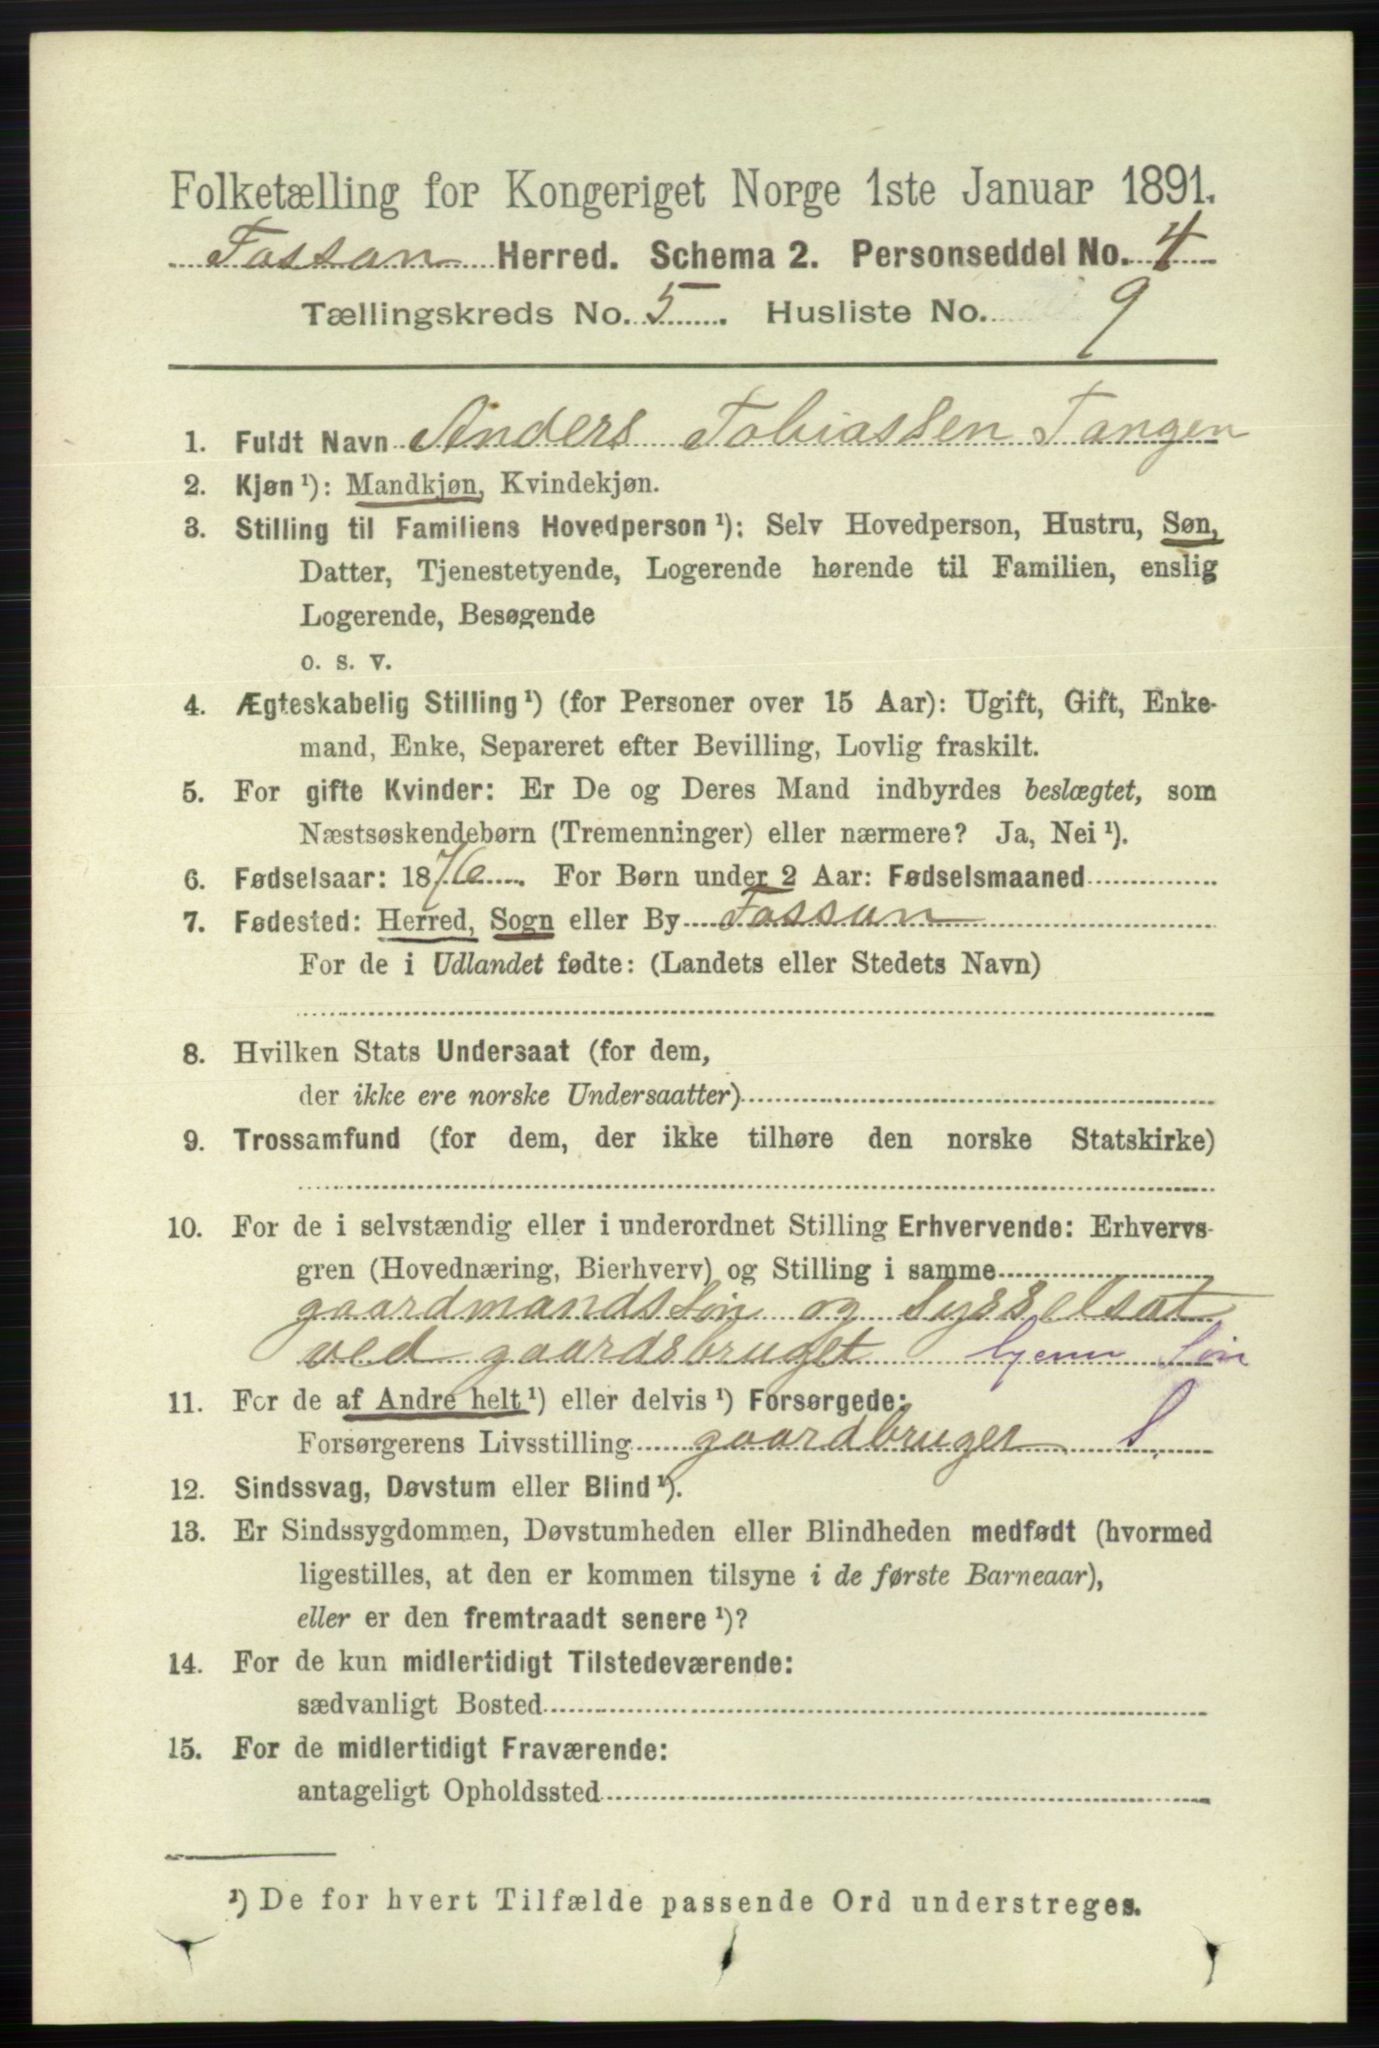 Folketælling for Kongeriget Norge 1ste Januar 1891.
Fossan Herred. Schema 2. Personseddel No. 4
Tællingskreds No. 5. Husliste No. 9
1. Fuldt Navn Anders Tobiassen Tangen
2. Kjøn ¹): Mandkjøn, Kvindekjøn.
3. Stilling til Familiens Hovedperson ¹): Selv Hovedperson, Hustru, Søn,
Datter, Tjenestetyende, Logerende hørende til Familien, enslig
Logerende, Besøgende
o. s. v.
4. Ægteskabelig Stilling ¹) (for Personer over 15 Aar): Ugift, Gift, Enke-
mand, Enke, Separeret efter Bevilling, Lovlig fraskilt.
5. For gifte Kvinder: Er De og Deres Mand indbyrdes beslægtet, som
Næstsøskendebørn (Tremenninger) eller nærmere? Ja, Nei ¹).
6. Fødselsaar: 1876. For Børn under 2 Aar: Fødselsmaaned
7. Fødested: Herred, Sogn eller By Fossan
For de i Udlandet fødte: (Landets eller Stedets Navn)
8. Hvilken Stats Undersaat (for dem,
der ikke ere norske Undersaatter)
9. Trossamfund (for dem, der ikke tilhøre den norske Statskirke)
10. For de i selvstændig eller i underordnet Stilling Erhvervende: Erhvervs-
gren (Hovednæring, Bierhverv) og Stilling i samme
gaardmandssøn og sysselsat
ved gaardsbruget hjemv Søn
11. For de af Andre helt ¹) eller delvis ¹) Forsørgede:
Forsørgerens Livsstilling gaardbruger S.
12. Sindssvag, Døvstum eller Blind ¹).
13. Er Sindssygdommen, Døvstumheden eller Blindheden medfødt (hvormed
ligestilles, at den er kommen tilsyne i de første Barneaar),
eller er den fremtraadt senere ¹)?
14. For de kun midlertidigt Tilstedeværende:
sædvanligt Bosted
15. For de midlertidigt Fraværende:
antageligt Opholdssted
¹) De for hvert Tilfælde passende Ord understreges.